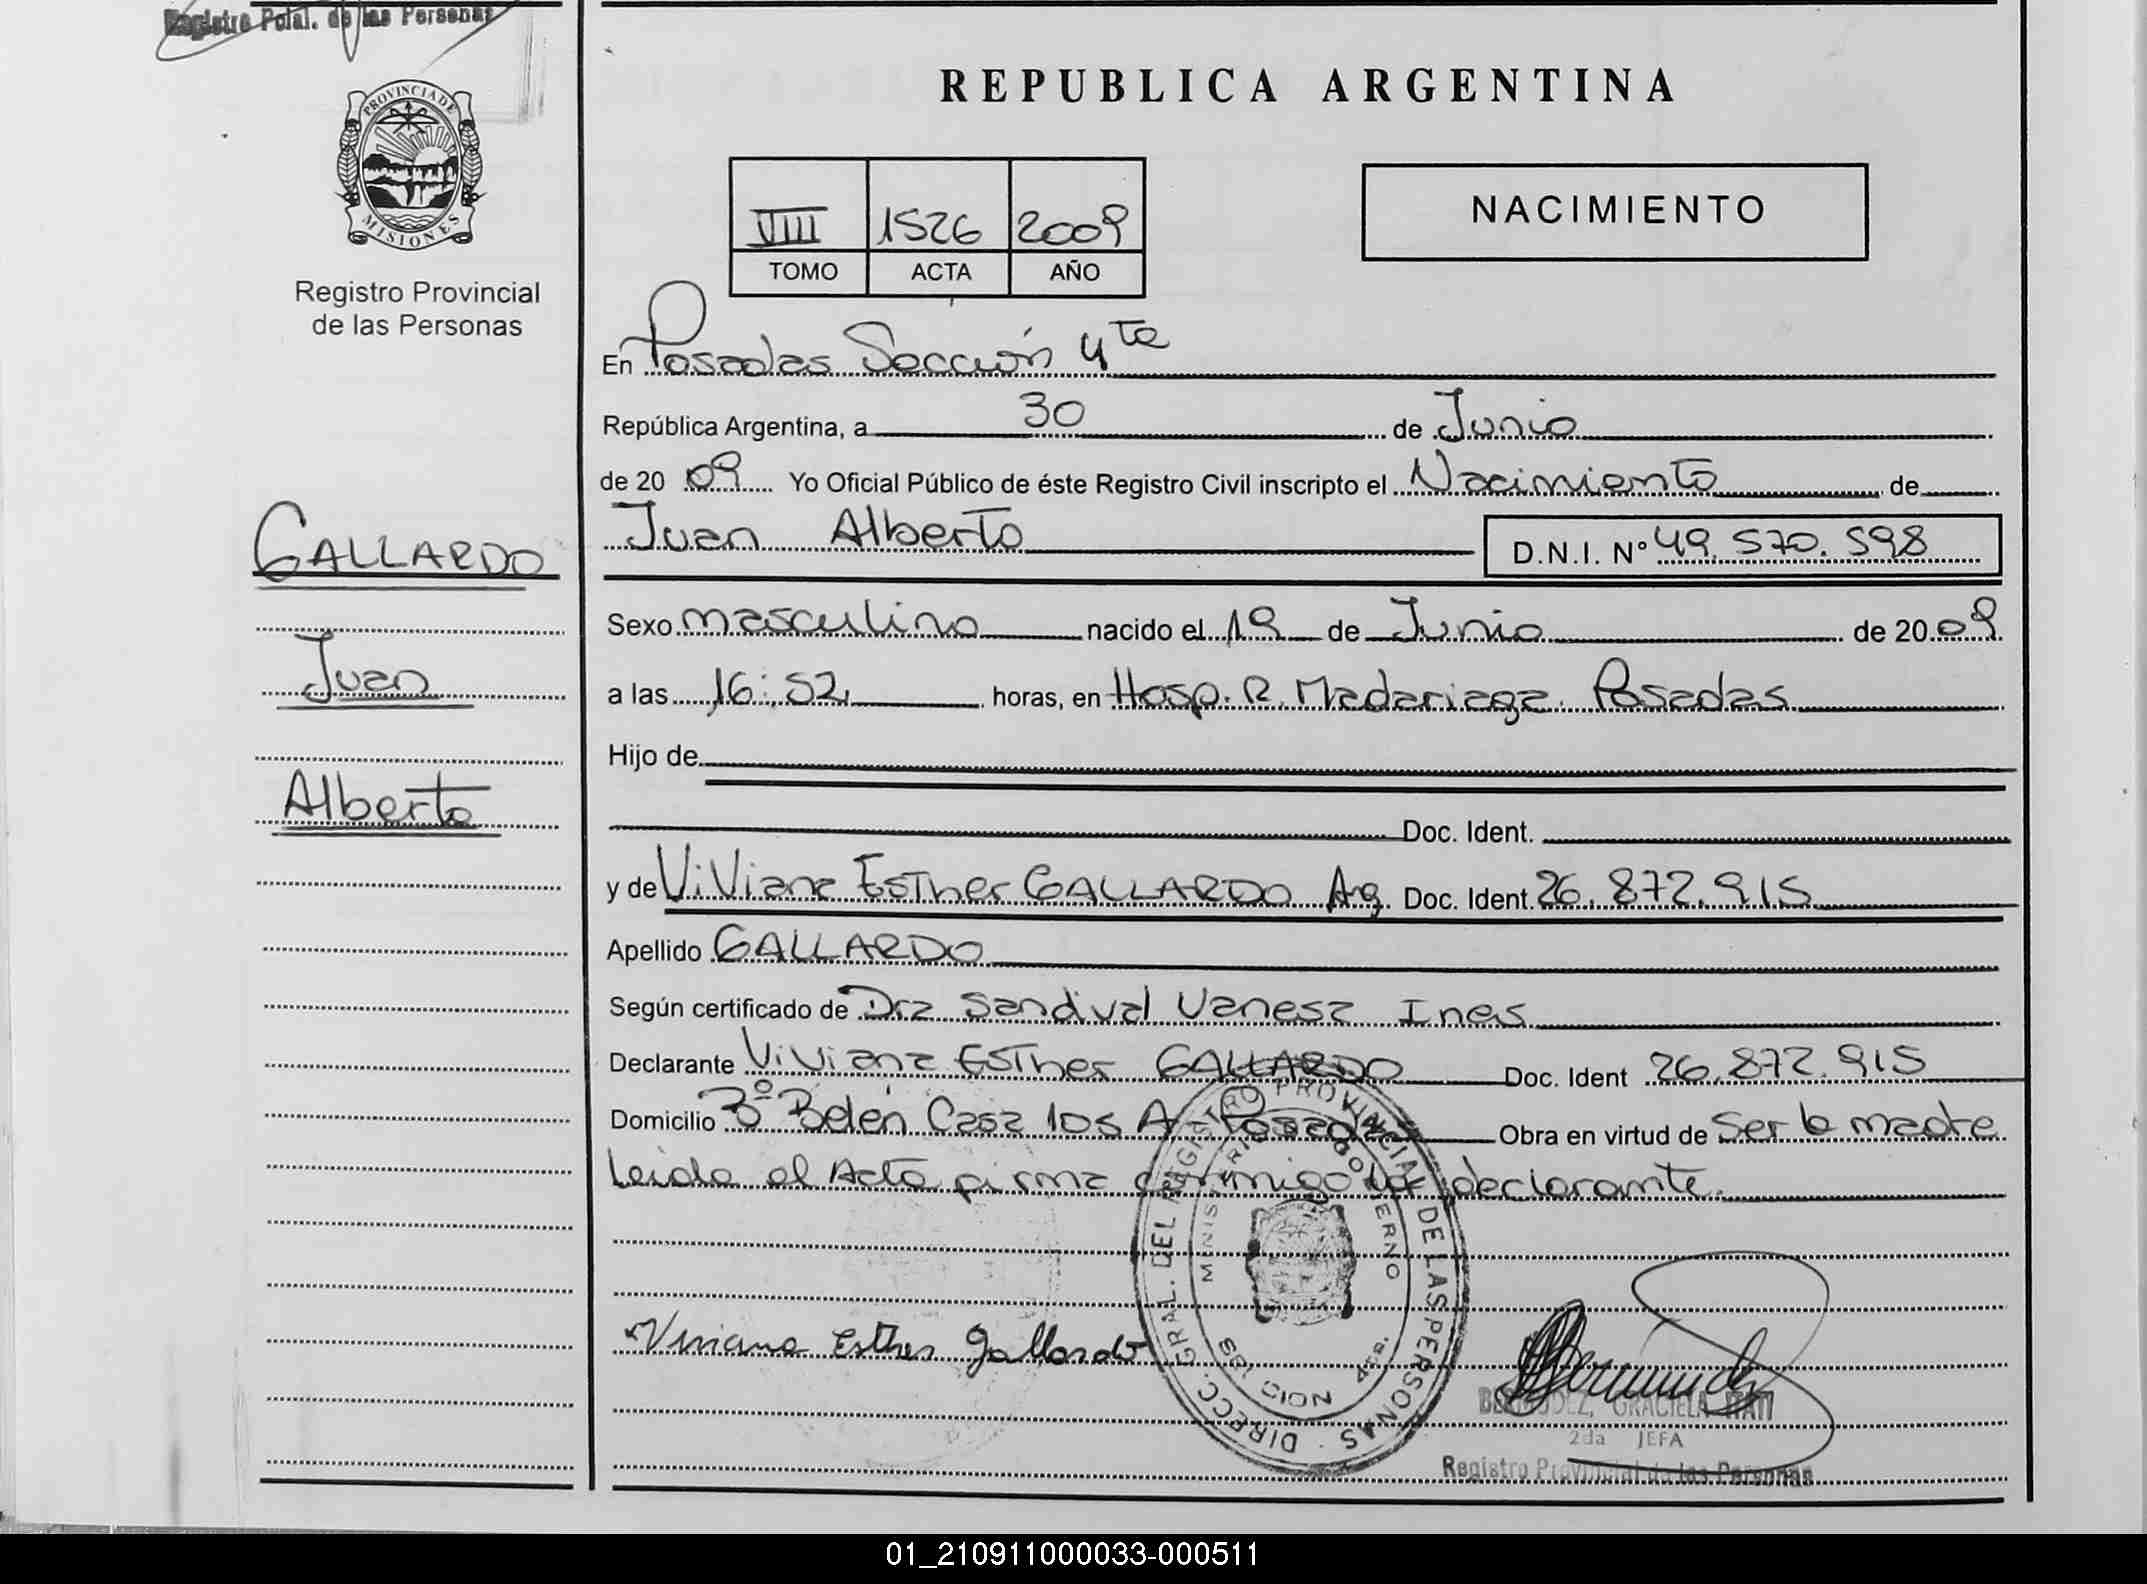 Registro Pcial. de las Personas
PROVINCIA DE
MISIONES
Registro Provincial
de las Personas
GALLARDO
Juan
Alberto
REPUBLICA ARGENTINA
VIII 1526 2009
TOMO ACTA AÑO
NACIMIENTO
En Posadas Sección 4ta
República Argentina, a 30 de Junio
de 20 09 Yo Oficial Público de éste Registro Civil inscripto el Nacimiento de
Juan Alberto D.N.I. Nº 49.570.598
Sexo masculino nacido el 19 de Junio de 20 09
a las 16:52 horas, en Hosp. R. Madariaga. Posadas
Hijo de
Doc. Ident.
y de Viviana Esther GALLARDO Arg. Doc. Ident. 26.872.915
Apellido GALLARDO
Según certificado de Dra Sandival Vanesa Ines
Declarante Viviana Esther GALLARDO Doc. Ident 26.872.915
Domicilio Bº Belén Casa 105 A Posadas Obra en virtud de Ser la madre
Leida el Acta firma conmigo la declarante.
DIRECC. GRAL. DEL REGISTRO PROVINCIAL DE LAS PERSONAS
MINISTERIO GOBIERNO
Viviana Esther Gallardo
BERMUDEZ, GRACIELA ITATI
2da JEFA
Registro Provincial de las Personas
01_210911000033-000511